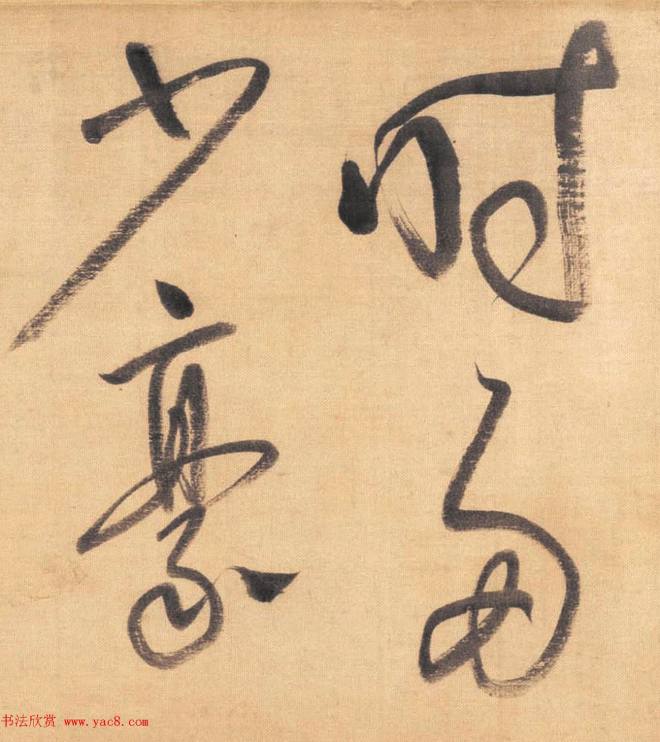 時多
少豪
书法欣赏 www.yac8.com